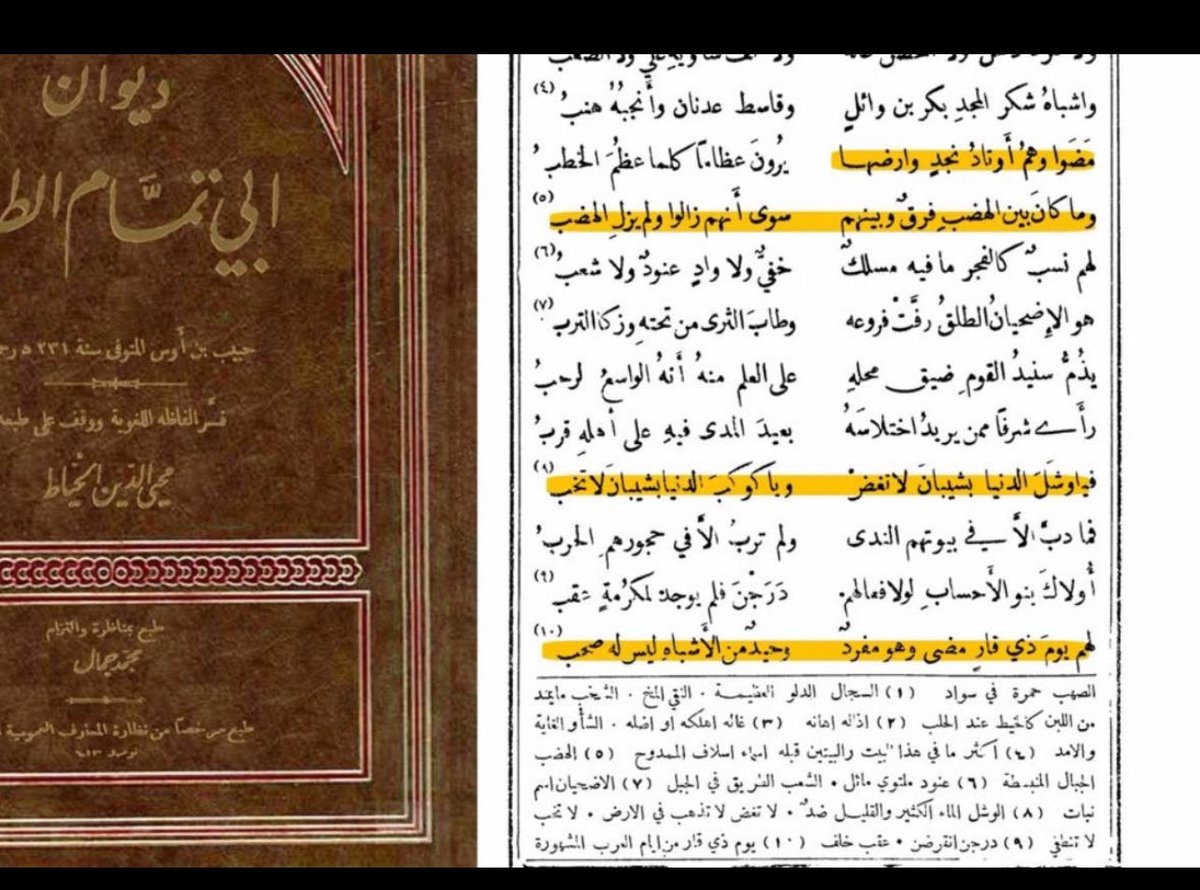 ديوان
ابي تمَّام الط
حبيب بن أوس المتوفى سنة ٢٣١ ه رح
فسَّر ألفاظه اللغوية ووقف على طبعه
محيي الدين الخياط
طبع بمناظرة والتزام
محمد جمال
طبع مرخصاً من نظارة المعارف العمومية
واشباهُ شكر المجدِ بكر بن وائلٍ وقاسط عدنان وأنجبهُ هنبُ (٤)
مضَوا وهمُ أوتادُ نجدٍ وارضها يُرونَ عظاماً كلما عظمَ الخطبُ
وما كانَ بين الهضبِ فرقٌ وبينهم سوى أنهم زالوا ولم يزلِ الهضبُ (٥)
لهم نسبٌ كالفجر ما فيه مسلكٌ خفيٌّ ولا وادٍ عنودٌ ولا شعبُ (٦)
هو الإضحيانُ الطلقُ رفَّتْ فروعه وطابَ الثرى من تحتهِ وزكا التربُ (٧)
يذمُّ سنيدُ القوم ضيق محلهِ على العلم منهُ أنهُ الواسعُ لرحبُ
رأَى شرفًا ممن يريدُ اختلاسَهُ بعيدَ المدى فيهِ على أهلهِ قربُ
فيا وشَلَ الدنيا بشيبانَ لا تغضْ ويا كوكبَ الدنيا بشيبانَ لا تخبُ (٩)
فما دبَّ الاَّ في بيوتهم الندى ولم تربُ الاَّ في حجورهمِ الحربُ
أُولاكَ بنو الأحسابِ لولا فعالهم درَجْنَ فلم يوجد لمكرُمةٍ عقبُ (٩)
لهم يومَ ذي قارٍ مضى وهو مفردٌ وحيدٌ من الأشباهِ ليس له صحبُ (١٠)
الصهب حمرة في سواد (١) السجال الدلو العظيمة . النقي المخ . الشخب ما يمتد
من اللبن كالخيط عند الحلب (٢) اذاله اهانه (٣) غاله اهلكه او اضله . الشأو الغاية
والامد (٤) اكثر ما في هذا البيت والبيتين قبله اسماء اسلاف الممدوح (٥) الهضب
الجبال المنبسطة (٦) عنود ملتوي مائل . الشعب الطريق في الجبل (٧) الاضحيان اسم
نبات (٨) الوشل الماء الكثير والقليل ضدٌ . لا تغض لا تذهب في الارض . لا تخب
لا تنطفي (٩) درجن انقرضن . عقب خلف (١٠) يوم ذي قار من ايام العرب المشهورة